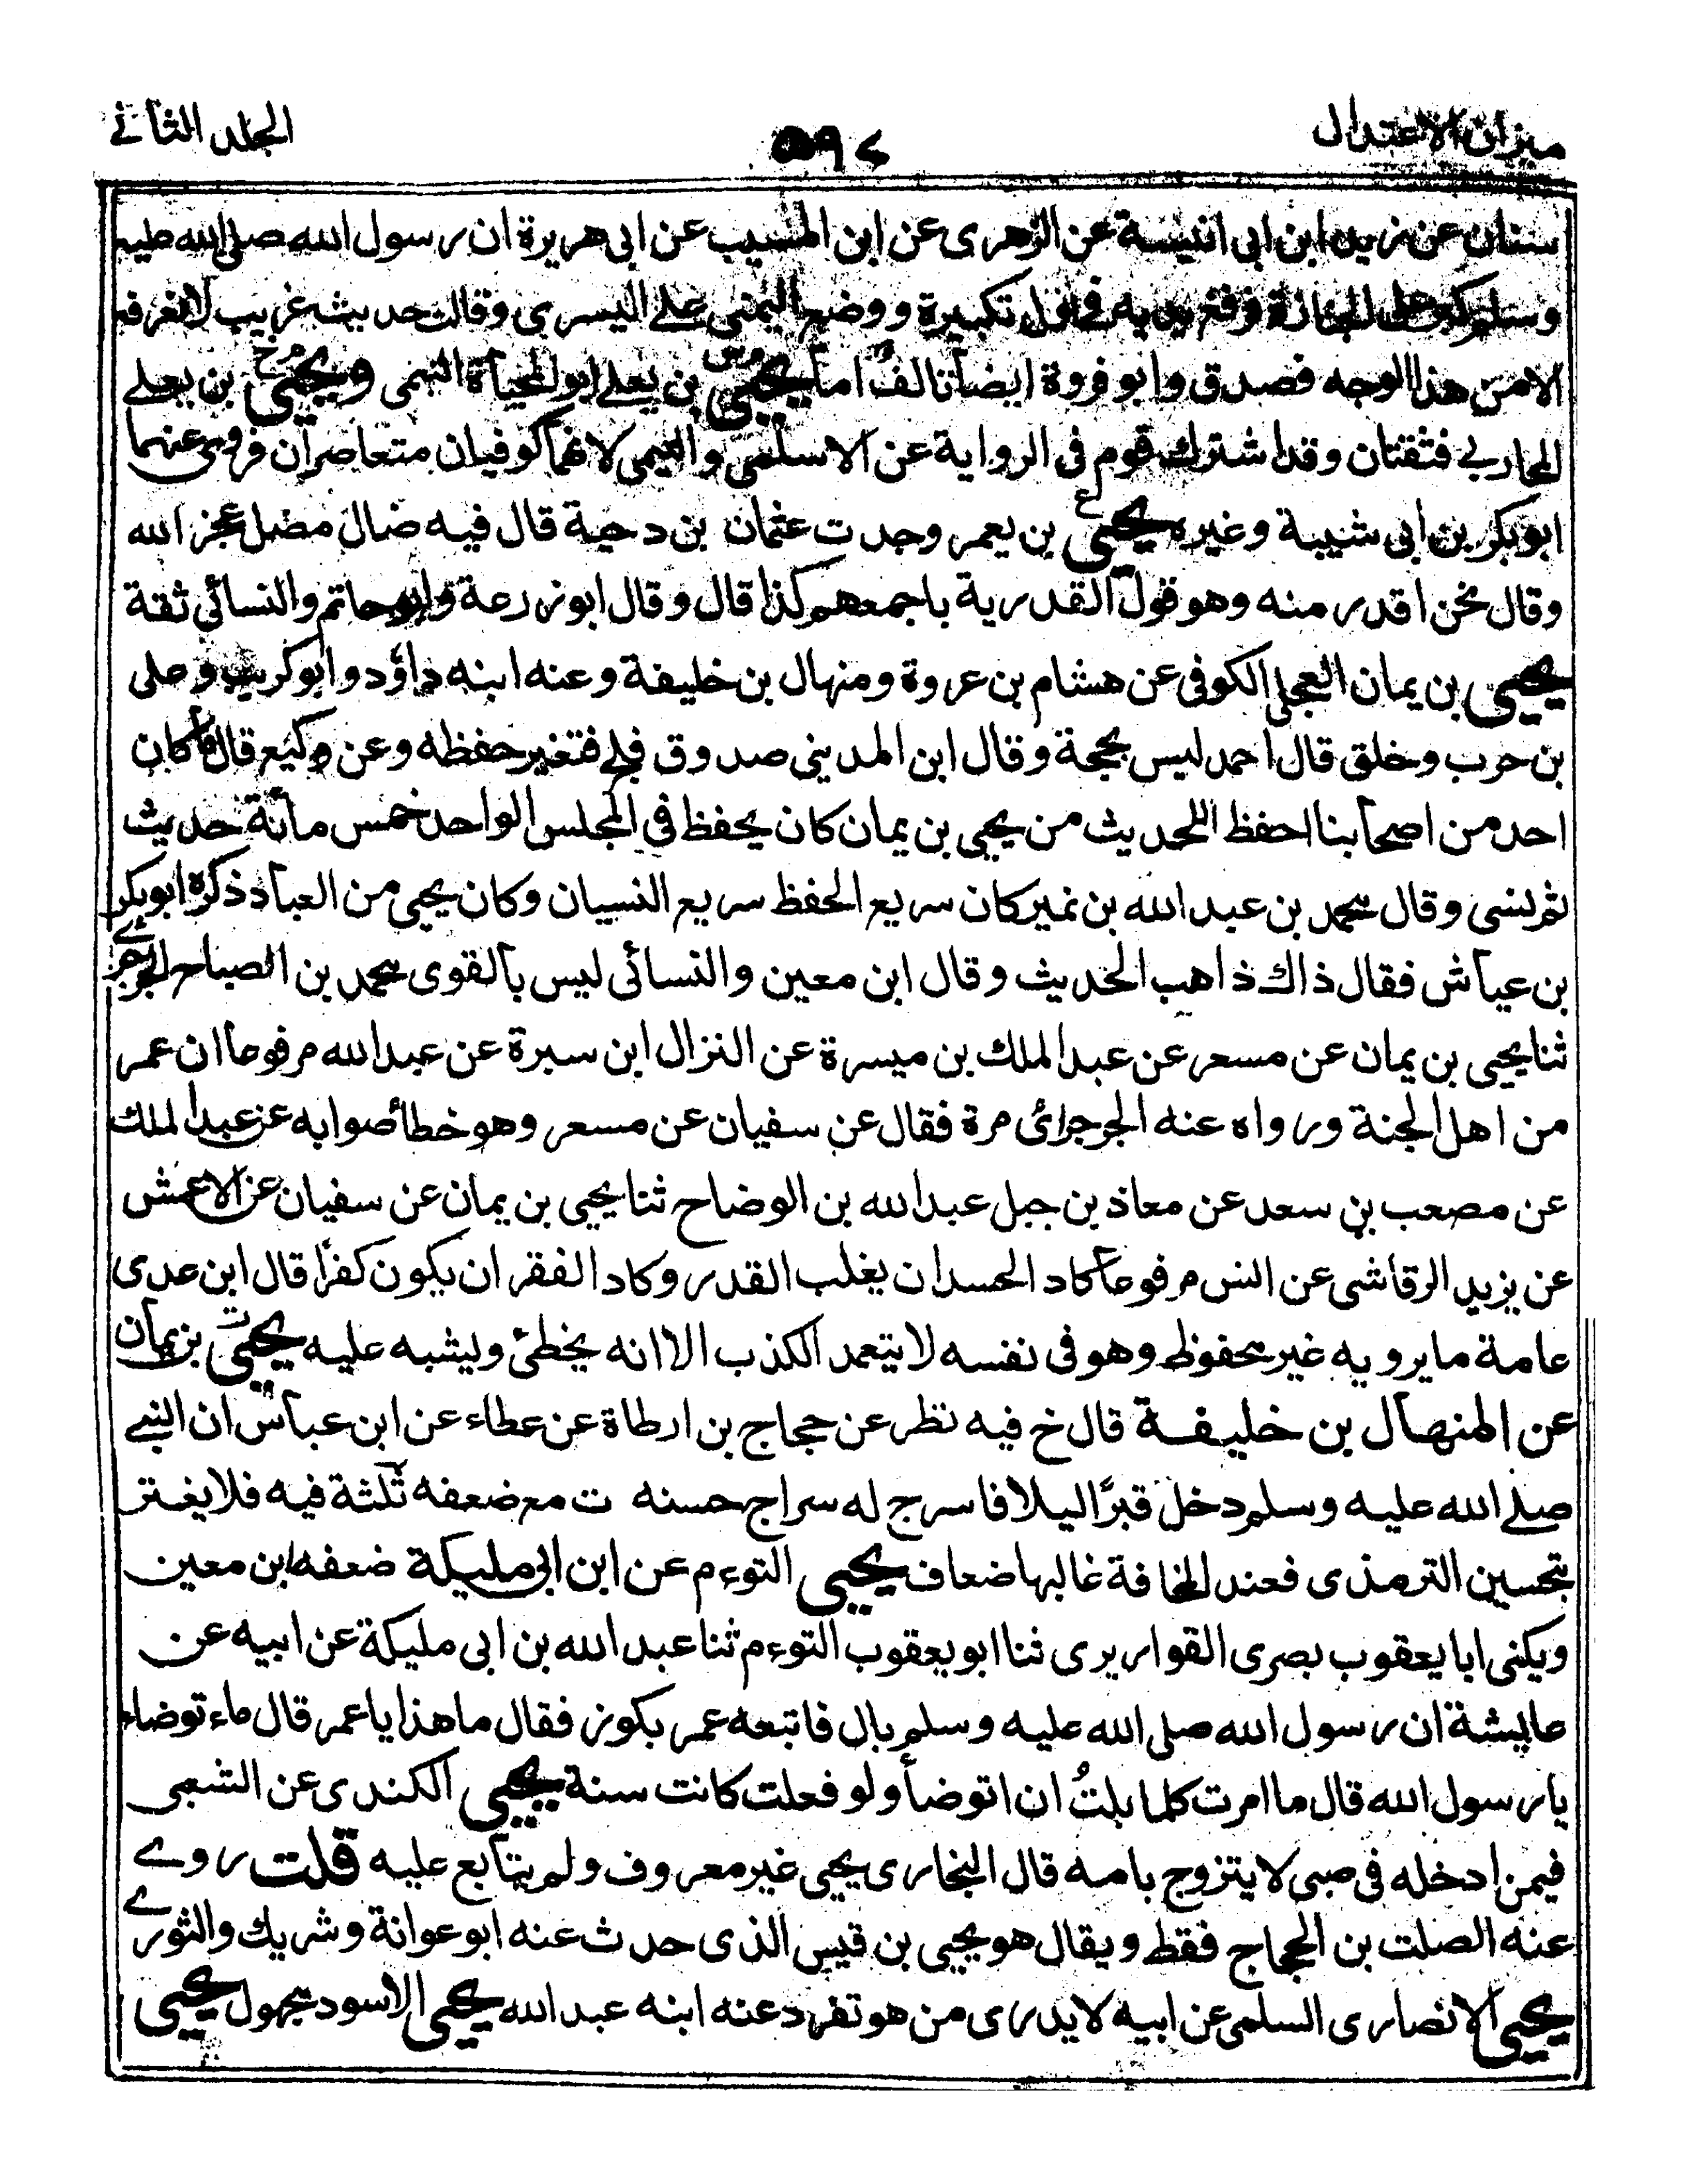 ميزان الاعتدال
٥٩٤
الجلد الثاني
سنان عن زيد ابن ابى انيسة عن الزهرى عن ابن المسيب عن ابى هريرة ان رسول الله صلى الله عليه
وسلم كبر على الجنازة فرفع يديه فى اول تكبيرة ووضع اليمنى على اليسرى وقال ت حديث غريب لا نعرفه
الا من هذا الوجه فصدق وابو فروة ايضا تالف اما يحيى بن يعلى ابو المحياة التيمى ويحيى بن يعلى
المحاربى فثقتان وقد اشترك قوم فى الرواية عن الاسلمى والتيمى لانهما كوفيان متعاصران فروى عنهما
ابوبكر بن ابى شيبة وغيره يحيى بن يعمر وجدت عثمان بن دحية قال فيه ضال مضل عجز الله
وقال نحن اقدر منه وهو قول القدرية باجمعهم كذا قال وقال ابوزرعة وابوحاتم والنسائى ثقة
يحيى بن يمان العجلى الكوفى عن هشام بن عروة ومنهال بن خليفة وعنه ابنه داؤد وابوكريب وعلى
بن حرب وخلق قال احمد ليس بحجة وقال ابن المدينى صدوق فلج فتغير حفظه وعن وكيع قال ما كان
احد من اصحابنا احفظ للحديث من يحيى بن يمان كان يحفظ فى المجلس الواحد خمس مائة حديث
ثم نسى وقال محمد بن عبد الله بن نمير كان سريع الحفظ سريع النسيان وكان يحيى من العباد ذكره ابوبكر
بن عياش فقال ذاك ذاهب الحديث وقال ابن معين والنسائى ليس بالقوى محمد بن الصباح الجرجرائى
ثنا يحيى بن يمان عن مسعر عن عبد الملك بن ميسرة عن النزال ابن سبرة عن عبد الله مرفوعا ان عمر
من اهل الجنة ورواه عنه الجرجرائى مرة فقال عن سفيان عن مسعر وهو خطأ صوابه عن عبد الملك
عن مصعب بن سعد عن معاذ بن جبل عبد الله بن الوضاح ثنا يحيى بن يمان عن سفيان عن الاعمش
عن يزيد الرقاشى عن انس مرفوعا كاد الحسد ان يغلب القدر وكاد الفقر ان يكون كفرًا قال ابن عدى
عامة ما يرويه غير محفوظ وهو فى نفسه لا يتعمد الكذب الا انه يخطئ ويشبه عليه يحيى بن يمان
عن المنهال بن خليفة قال خ فيه نظر عن حجاج بن ارطاة عن عطاء عن ابن عباس ان النبى
صلى الله عليه وسلم دخل قبرًا ليلا فاسرج له سراج حسنه ت مع ضعفه ثلثة فيه فلا يغتر
بتحسين الترمذى فعند المخافة غالبها ضعاف يحيى التوءم عن ابن ابى مليكة ضعفه ابن معين
ويكنى ابا يعقوب بصرى القواريرى ثنا ابو يعقوب التوءم ثنا عبد الله بن ابى مليكة عن ابيه عن
عايشة ان رسول الله صلى الله عليه وسلم بال فاتبعه عمر بكوز فقال ما هذا يا عمر قال ماء توضاء
يا رسول الله قال ما امرت كلما بلتُ ان اتوضأ ولو فعلت كانت سنة يحيى الكندى عن الشعبى
فيمن ادخله فى صبى لا يتزوج بامه قال البخارى يحيى غير معروف ولم يتابع عليه قلت روى
عنه الصلت بن الحجاج فقط ويقال هو يحيى بن قيس الذى حدث عنه ابوعوانة وشريك والثورى
يحيى الانصارى السلمى عن ابيه لا يدرى من هو تفرد عنه ابنه عبد الله يحيى الاسود مجهول يحيى